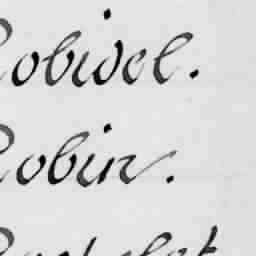 Robidel.
Robin.